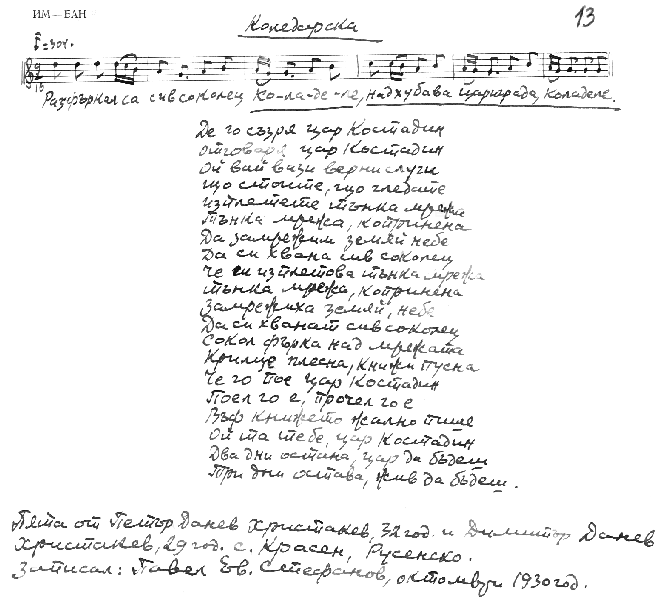 ИМ — БАН
13
Коледарска
♩=304.
Разфъркал са сив соколец ко-ла-де-ле, над хубава Цариграда, коладеле.
Де го съзря цар Костадин
отговаря цар Костадин
Ой вай вази верни слуги
що стоите, що гледате
изплетете тънка мрежа
тънка мрежа, копринена
Да замрежим земяй небе
Да си хвана сив соколец
Че си изплетова тънка мрежа
тънка мрежа, копринена
Замрежиха земяй, небе
Да си хванат сив соколец
Сокол фърка над мрежата
Крилце плесна, книжи пусна
Че го пое цар Костадин
Поел го е, прочел го е
Във книжето жално пише
Ой та тебе, цар Костадин
Два дни остана, цар да бъдеш
Три дни остава, жив да бъдеш.
Пята от Петър Данев Христакев, 32 год. и Димитър Данев
Христакев, 29 год. с. Красен, Русенско.
Записал: Павел Ев. Стефанов, октомври 1930 год.